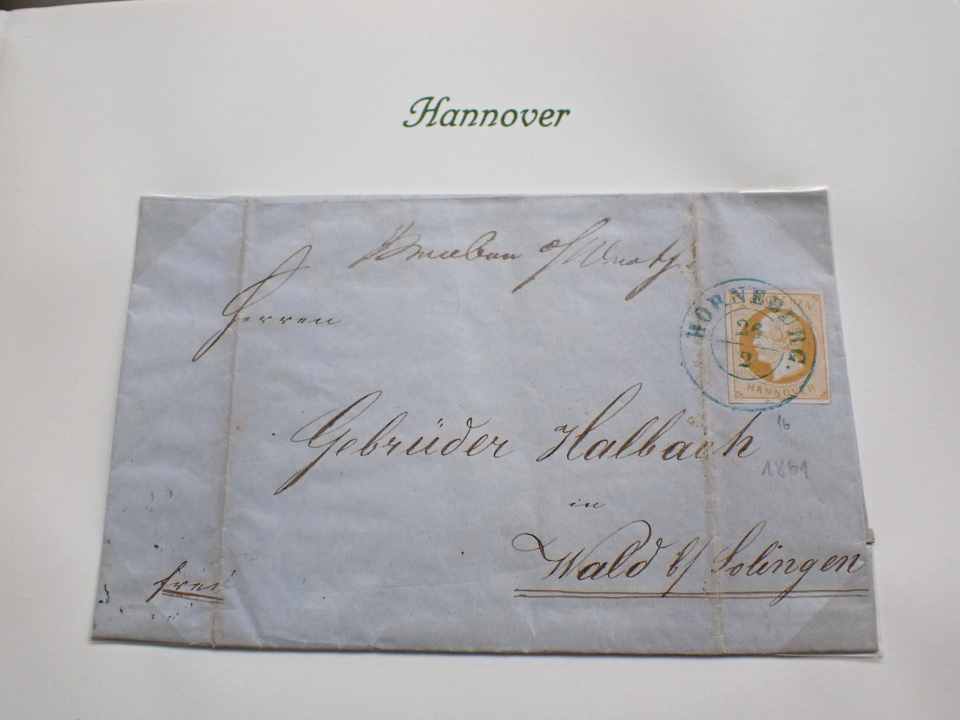 Hannover
Herren
HORNEBURG.
24
2
HANNOVER
Gebrüder Halbach
16
1861
in
Wald b/ Solingen
frei